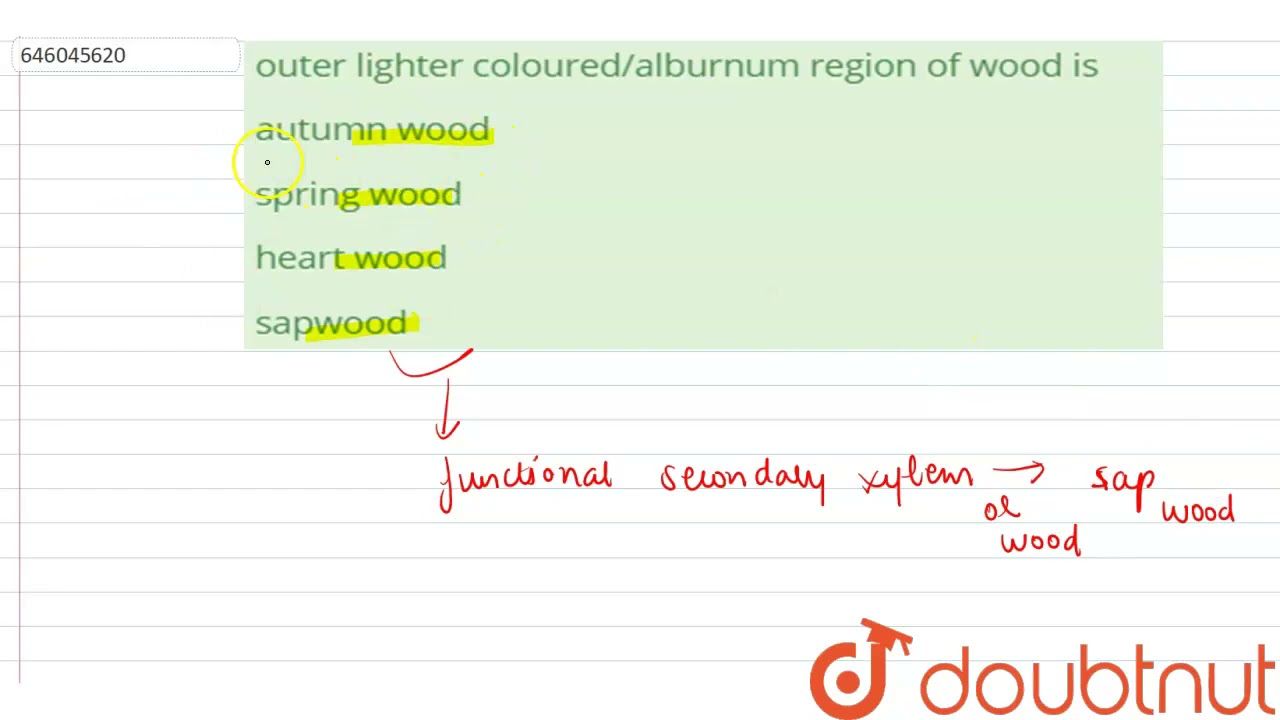 646045620
outer lighter coloured/alburnum region of wood is
autumn wood
spring wood
heart wood
sapwood
functional secondary xylem → sap wood
or wood
doubtnut